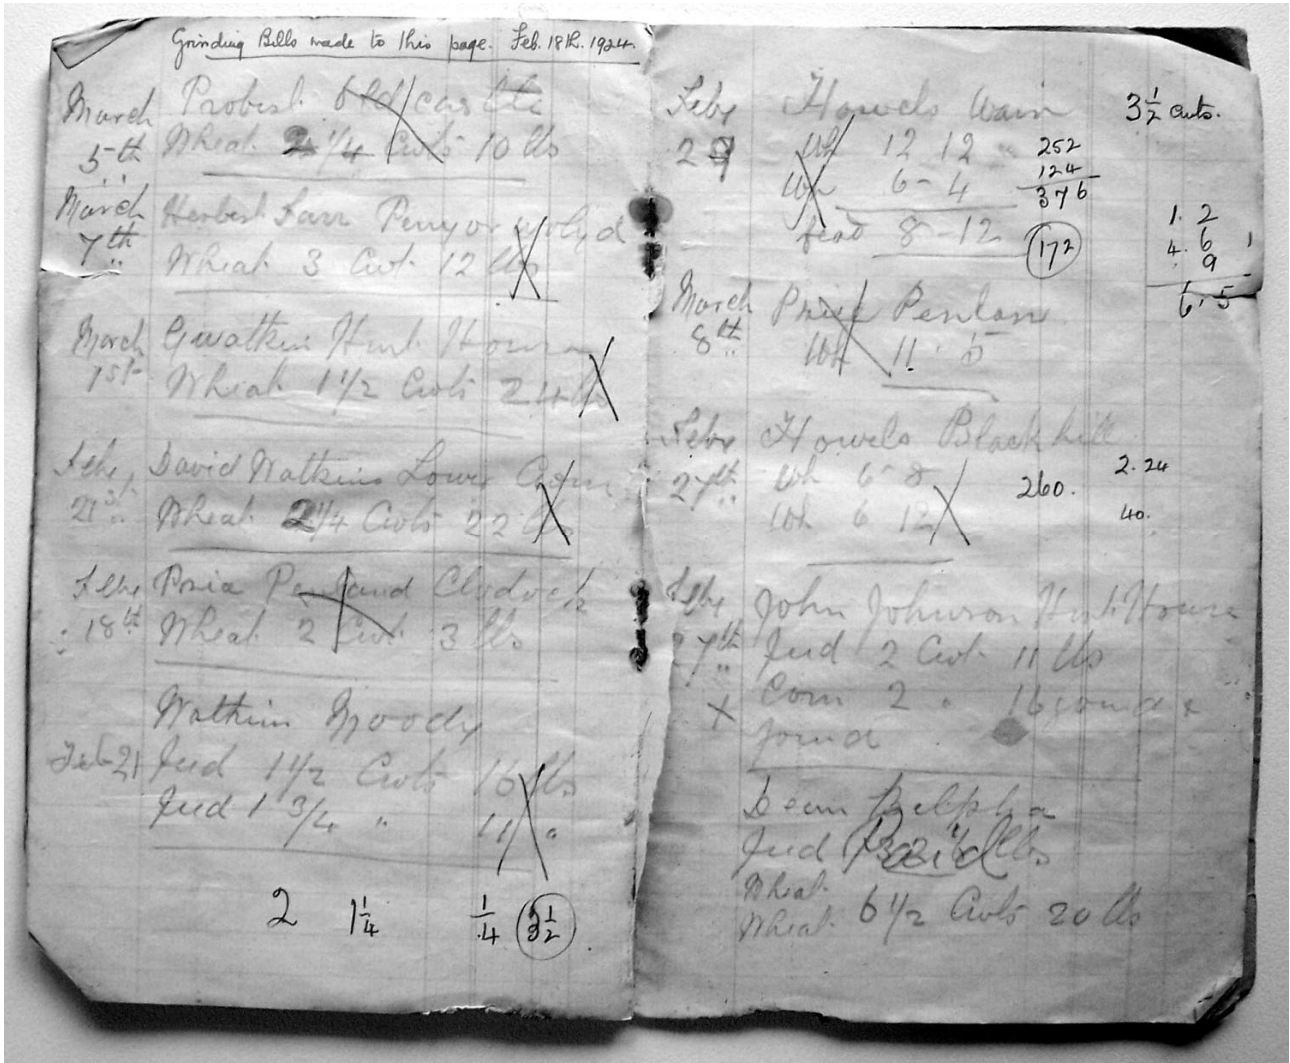 Grinding Bills made to this page. Feb. 18th. 1924.
March Probert Old castle
5th Wheat 2 1/4 Cwts 10 lbs
March Herbert Farr Penyor
7th Wheat 3 Cwt 12 lbs
March Gwatkin Hunt House
1st Wheat 1 1/2 Cwts 24 lbs
Feby David Watkins Lower
21st Wheat 2 1/4 Cwts 22 lbs
Feby Price Clodock
18th Wheat 2 Cwt 3 lbs
Watkin Moody
Feb 21 Feed 1 1/2 Cwts 16 lbs
Feed 1 3/4 " 11 "
2 1 1/4 1/4 3 1/2
Feby Howels Wain 3 1/2 cwts.
29 Wh 12 12 " 252
Wh 6 - 4 124
376
feed 8 - 12 172
1. 2
4. 6
9
6. 5
March Price Penlan
8th Wh 11. 5
Feby Howels Blackhill
27th Wh 6 8 260. 2. 24
Wh 6 12 40.
Feby John Johnson Hunt House
27th Feed 2 Cwt 11 lbs
x Corn 2 " 16
Dean
Feed Paid lbs
Wheat
Wheat 6 1/2 Cwts 20 lbs